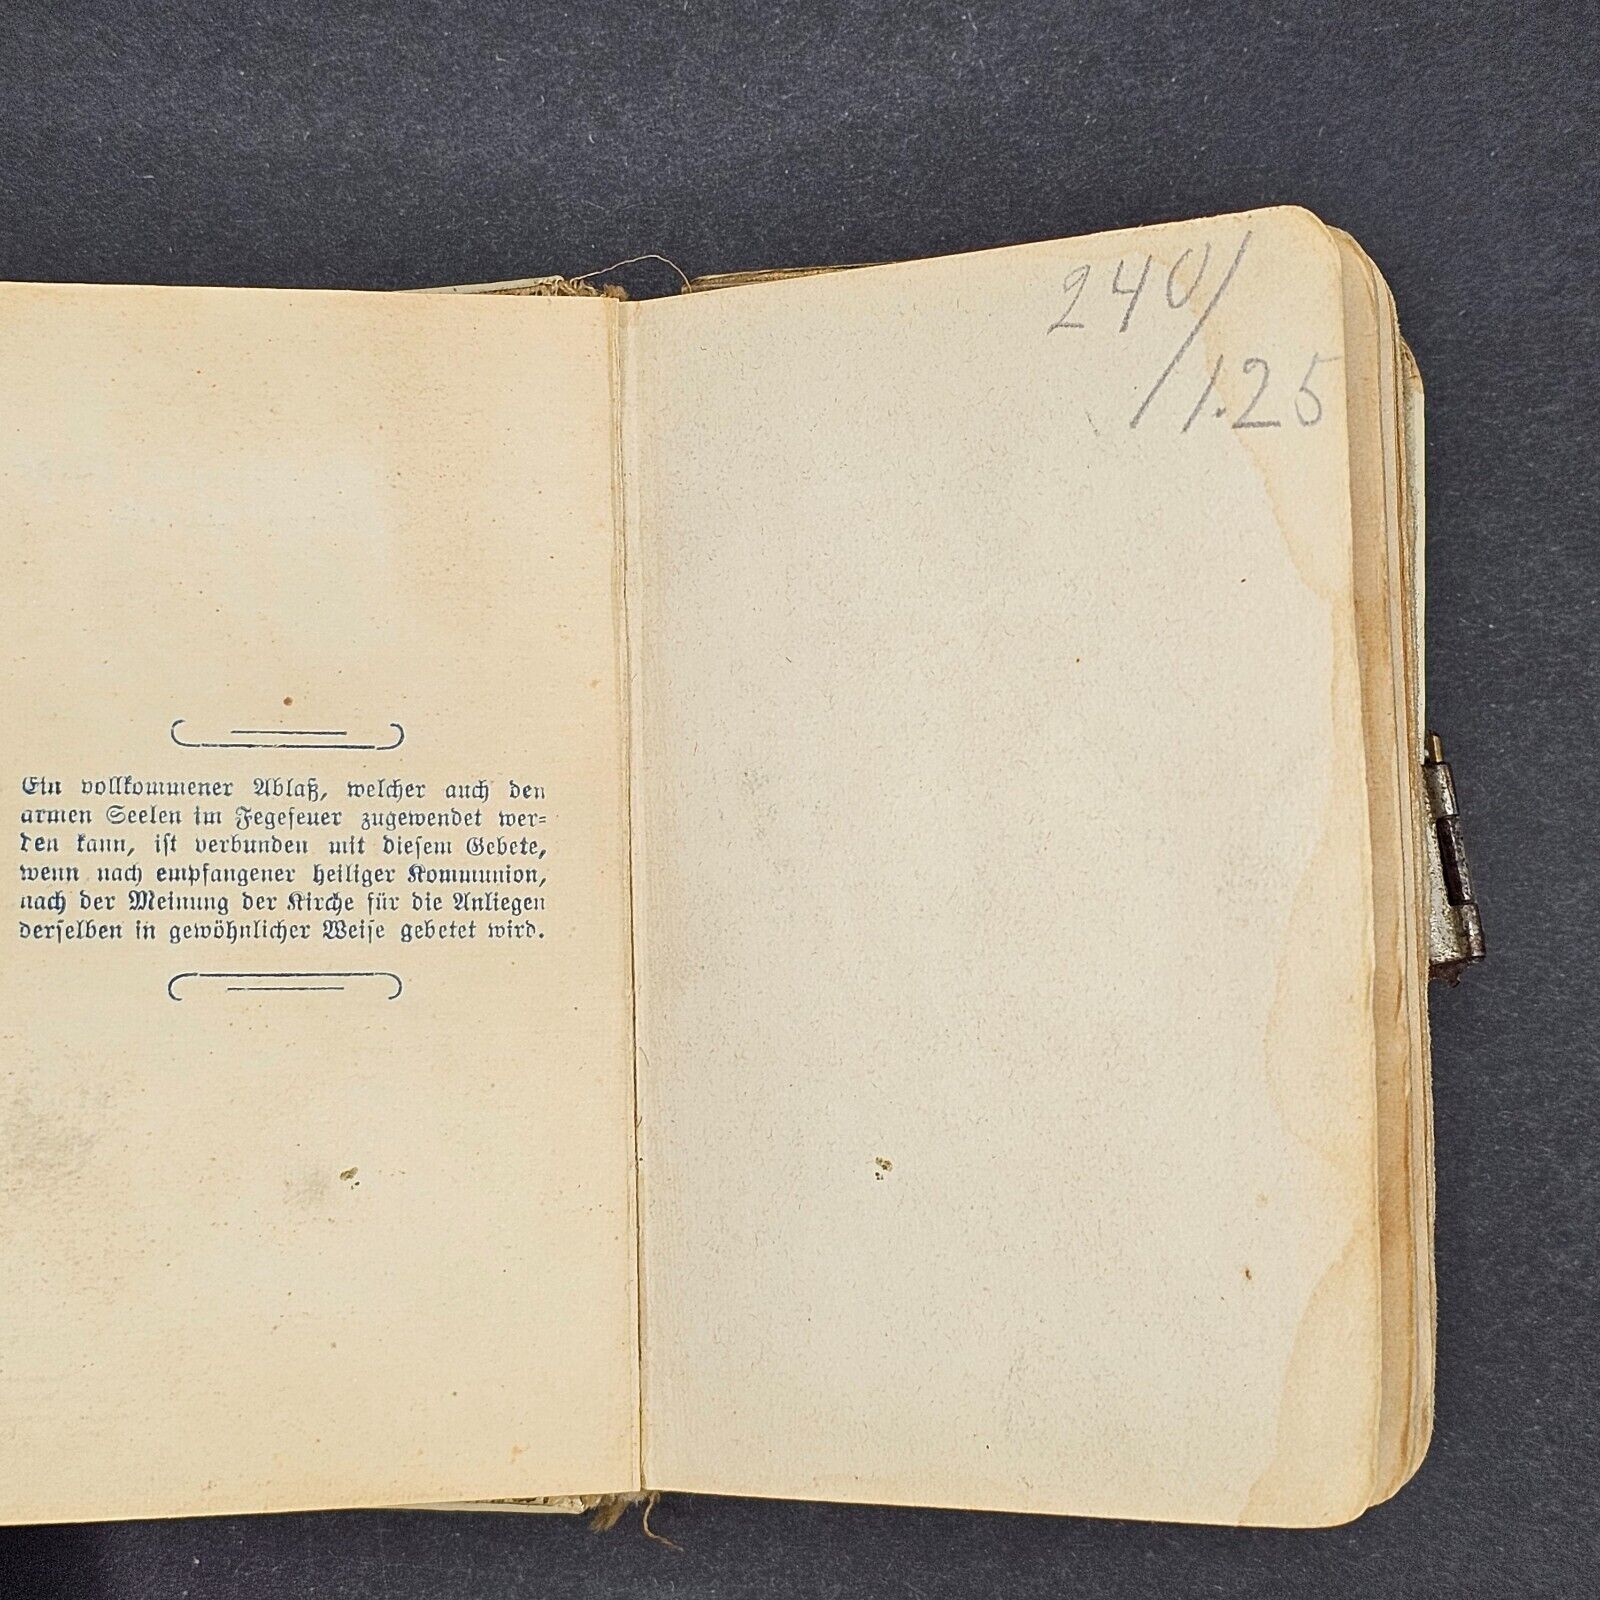 Ein vollkommener Ablaß, welcher auch den
armen Seelen im Fegefeuer zugewendet wer=
den kann, ist verbunden mit diesem Gebete,
wenn nach empfangener heiliger Kommunion,
nach der Meinung der Kirche für die Anliegen
derselben in gewöhnlicher Weise gebetet wird.
240/
1.25